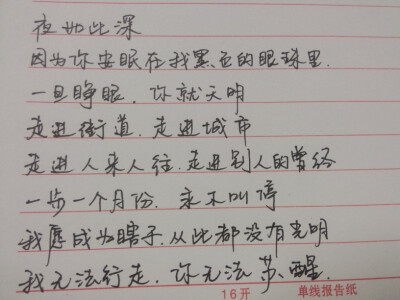 夜如此深
因为你安眠在我黑色的眼球里.
一旦睁眼. 你就天明
走进街道. 走进城市
走进人来人往. 走进别人的曾经
一步一个月份. 永不叫停
我愿成为瞎子. 从此都没有光明
我无法行走. 你无法苏醒.
16开 单线报告纸